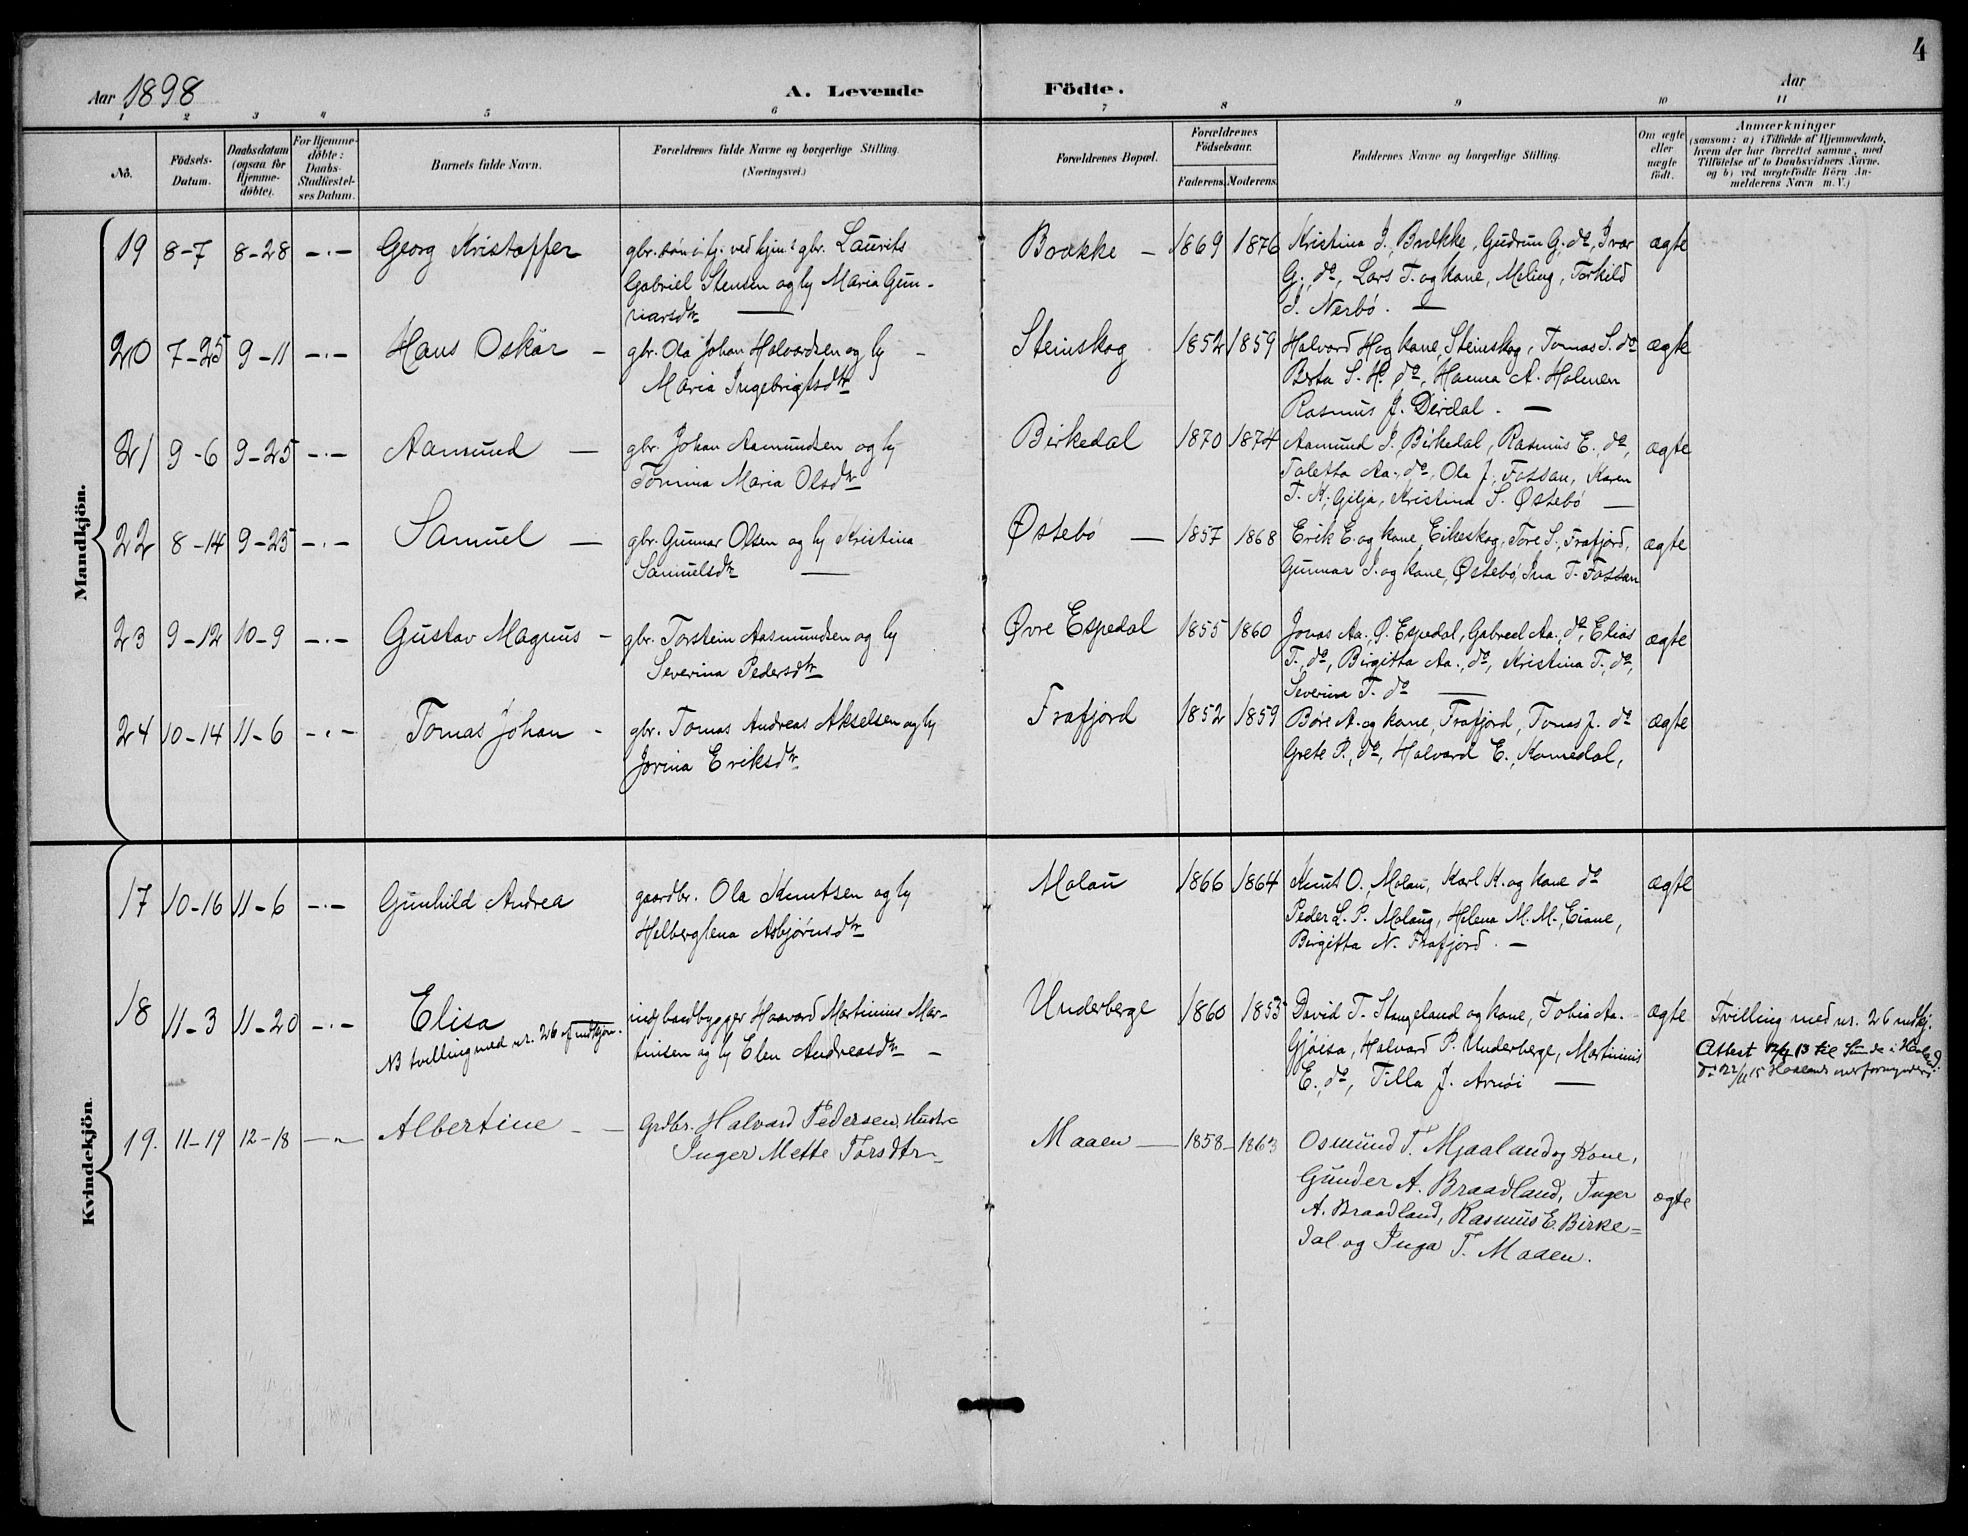 4
Aar 1898
A. Levende Födte.
Aar
1 2 3 4 5 6 7 8 9 10 11
No.
Födsels-Datum.
Daabsdatum (ogsaa for Hjemme-döbte).
For Hjemme-döbte: Daabs-Stadfæstel-ses Datum.
Barnets fulde Navn.
Forældrenes fulde Navne og borgerlige Stilling. (Næringsvei.)
Forældrenes Bopæl.
Forældrenes Födselsaar.
Faderens. Moderens.
Faddernes Navne og borgerlige Stilling.
Om ægte eller uægte födt.
Anmærkninger
(saasom: a) i Tilfælde af Hjemmedaab,
hvem der har forrettet samme, med
Tilföielse af to Daabsvidners Navne,
og b) ved uægtefödte Börn An-
melderens Navn m. V.)
Mandkjön.
19 8-7 8-28 -·- Georg Kristoffer
gbr. søn i hj. ved hjem: gbr. Laurits
Gabriel Stensen og hj Maria Gun-
narsdtr —
Brække — 1869 1876
Kristina J. Brække, Gudrun G. do, Ivar
G. do, Lars T. og kone, Meling, Torkild
J. Nerbø. —
ægte
20 7-25 9-11 -·- Hans Oskar —
gbr. Ola Johan Halvardsen og hj —
Maria Ingebrigtsdtr
Steinskog 1852 1859
Halvard H og kone, Steinskog, Tomas S. do
Berta S. H. do, Hanna A. Holmen
Rasmus J. Dirdal. —
ægte
21 9-6 9-25 -·- Aamund —
gbr. Johan Aamundsen og hj
Tomina Maria Olsdtr
Birkedal 1870 1874
Aamund J. Birkedal, Rasmus E. do,
Taletta Aa. do, Ola J. Fossan, Karen
T. K. Gilja, Kristina S. Østebø —
ægte
22 8-14 9-25 -·- Samuel —
gbr. Gunnar Olsen og hj Kristina
Samuelsdtr —
Østebø — 1857 1868
Erik E. og kone, Eikeskog, Tore S., Frafjord,
Gunnar J. og kone, Østebø, Ina T. Fossan
ægte
23 9-12 10-9 -·- Gustav Magnus —
gbr. Torstein Aasmundsen og hj
Severina Pedersdtr
Øvre Espedal 1855 1860
Jonas Aa. Ø. Espedal, Gabreel Aa. do, Elias
T. do, Birgitta Aa. do, Kristina T. do,
Severina T. do —
ægte
24 10-14 11-6 -·- Tomas Johan -
gbr. Tomas Andreas Akselsen og hj
Jorina Eriksdtr
Frafjord 1852 1859
Børe A. og kone, Frafjord, Tomas J. do
Grete P. do, Halvard E. Komedal,
ægte
Kvindekjön.
17 10-16 11-6 -·- Gunhild Andrea
gaardbr. Ola Knutsen og hj
Helberglena Asbjørnsdtr
Molau 1866 1864
Knut O. Molau, Karl K. og kone do
Peder L. P. Molaug, Helena M. M. Eiane,
Birgitta N. Frafjord. —
ægte
18 11-3 11-20 -·- Elisa
NB tvilling med nr. 26 af mdkjøn.
indj baadbygger Haavard Martinius Mar-
tinsen og hj Elen Andreasdtr —
Underberge 1860 1853
David T. Stangeland og kone, Tobia Aa.
Gjøisa, Halvard P. Underberge, Martinius
E. do, Tilla J. Arnøi —
ægte
Tvilling med nr. 26 mdkj.
Attest 13 til Sunde i
do 22/ 15 Haalands overformynderi.
19. 11-19 12-18 — Albertine — —
Grdbr. Halvard Pedersen, Hustr
Inger Mette Torsdtr
Maaen — 1858- 1863
Osmund T. Mjaaland og Kone,
Gunder A. Braadland, Inger
A. Braadland, Rasmus E. Birke=
dal og Inga T. Maaen.
ægte